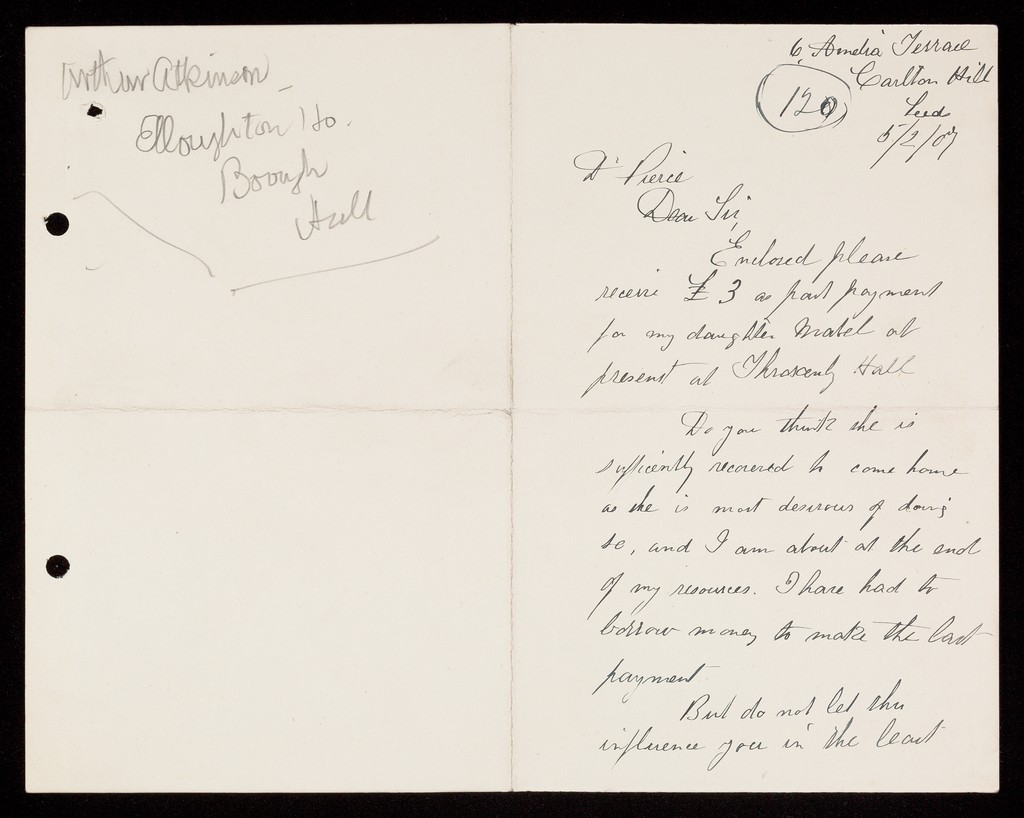 Arthur Atkinson
Elloughton Ho.
Brough
Hull
6 Amelia Terrace
Carlton Hill
Leeds
5/2/07
120
Dr Pierce
Dear Sir,
Enclosed please
receive £3 as part payment
for my daughter Mabel at
present at Throxenby Hall
Do you think she is
sufficiently recovered to come home
as she is most desirous of doing
so, and I am about at the end
of my resources. I have had to
borrow money to make the last
payment
But do not let this
influence you in the least